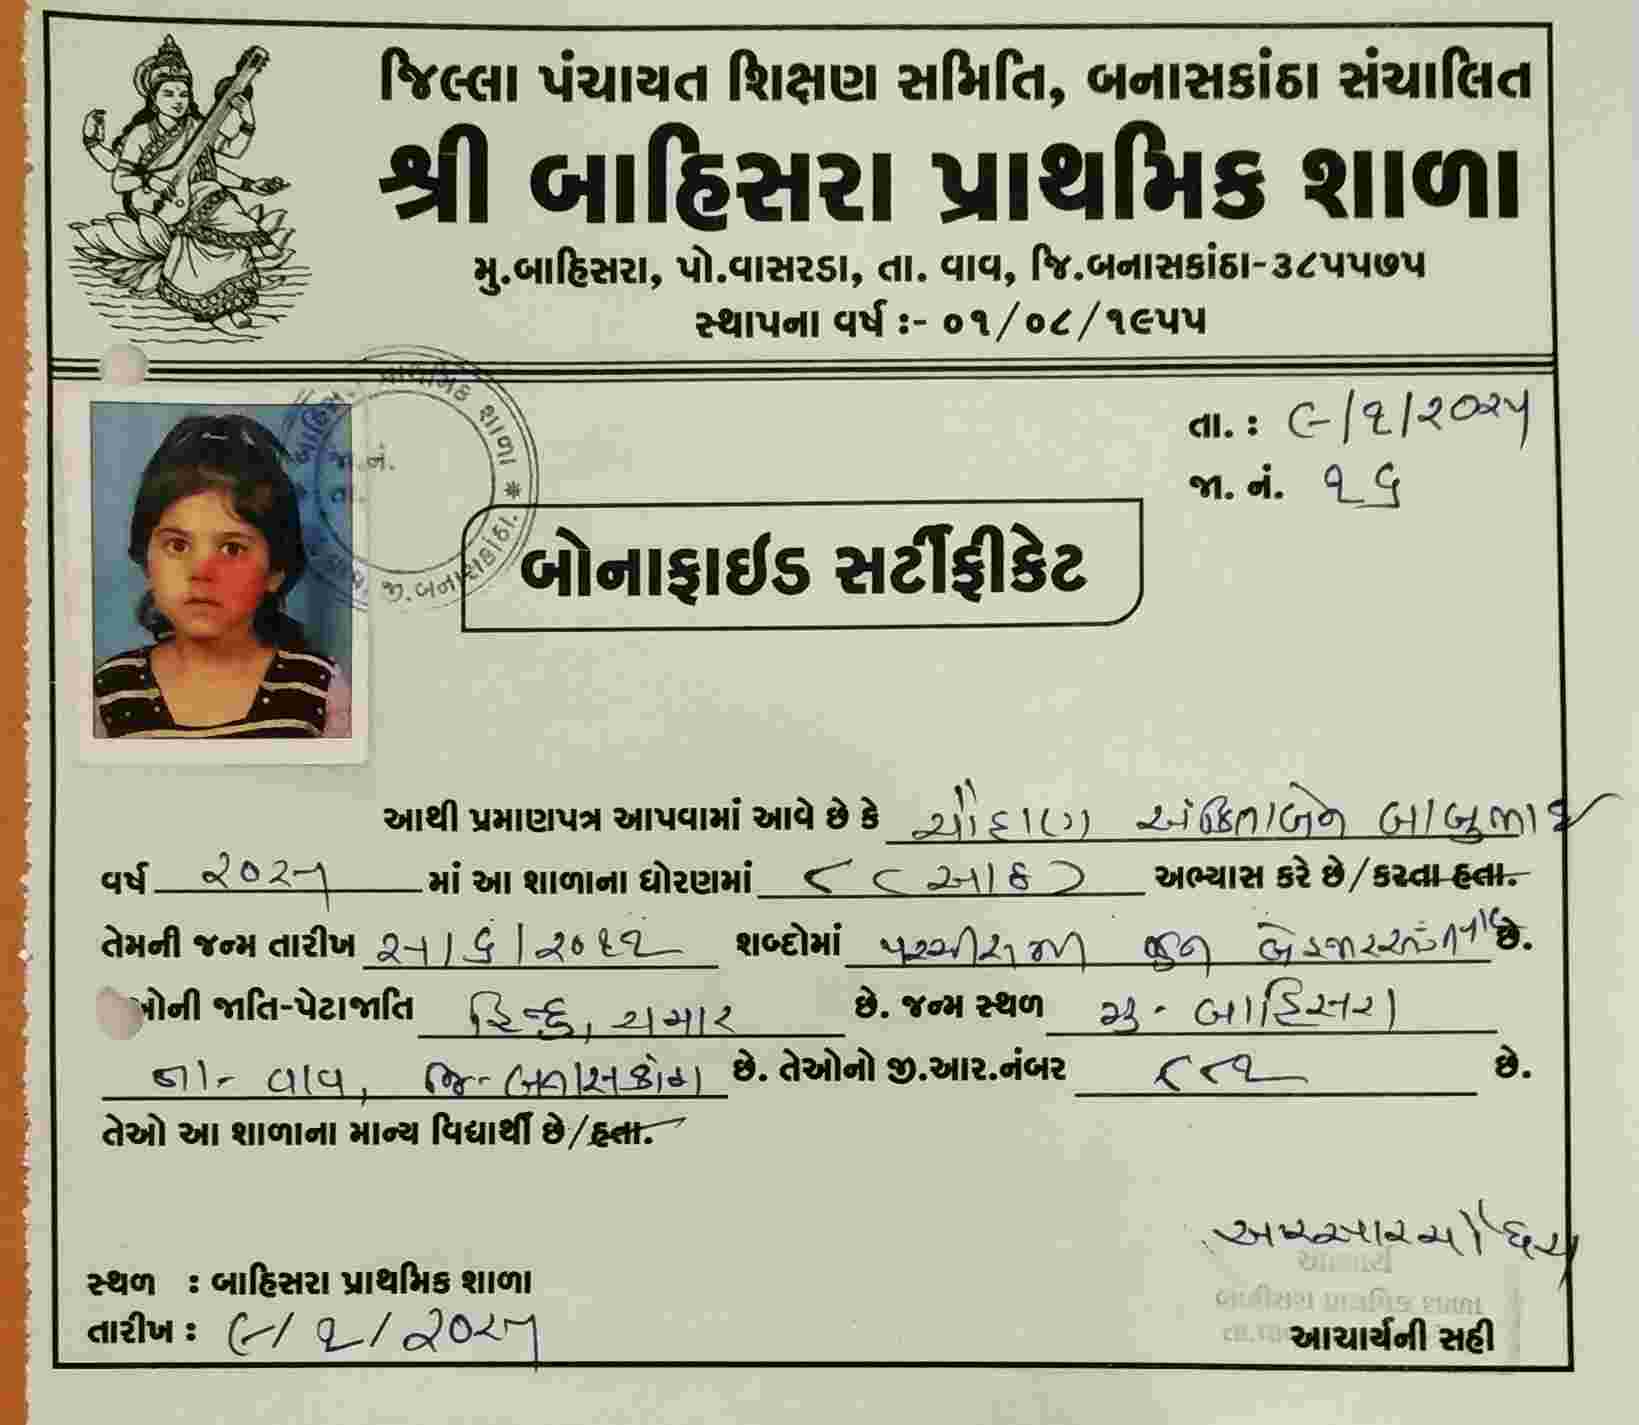 જિલ્લા પંચાયત શિક્ષણ સમિતિ, બનાસકાંઠા સંચાલિત
શ્રી બાહિસરા પ્રાથમિક શાળા
મુ.બાહિસરા, પો.વાસરડા, તા. વાવ, જિ.બનાસકાંઠા-૩૮૫૫૭૫
સ્થાપના વર્ષ :- ૦૧/૦૮/૧૯૫૫
પ્રાથમિક શાળા * જી.બનાસકાંઠા.
જા.નં.
તા.
તા. : ૯/૧/૨૦૨૫
જા. નં. ૧૬
બોનાફાઇડ સર્ટીફીકેટ
આથી પ્રમાણપત્ર આપવામાં આવે છે કે ચૌહાણ અંકિતાબેન બાબુભાઈ
વર્ષ ૨૦૨૫ માં આ શાળાના ધોરણમાં ૮ (આઠ) અભ્યાસ કરે છે/કરતા હતા.
તેમની જન્મ તારીખ ૨૫/૬/૨૦૧૨ શબ્દોમાં પચ્ચીસમી જુન બે હજાર છે.
ઓની જાતિ-પેટાજાતિ હિન્દુ, ચમાર છે. જન્મ સ્થળ મુ - બાહિસરા
તા - વાવ, જિ - બનાસકાંઠા છે. તેઓનો જી.આર.નંબર ૮૮૧ છે.
તેઓ આ શાળાના માન્ય વિદ્યાર્થી છે/હતા.
સ્થળ : બાહિસરા પ્રાથમિક શાળા
તારીખ : ૯/૧/૨૦૨૫
આચાર્ય
આચાર્યની સહી